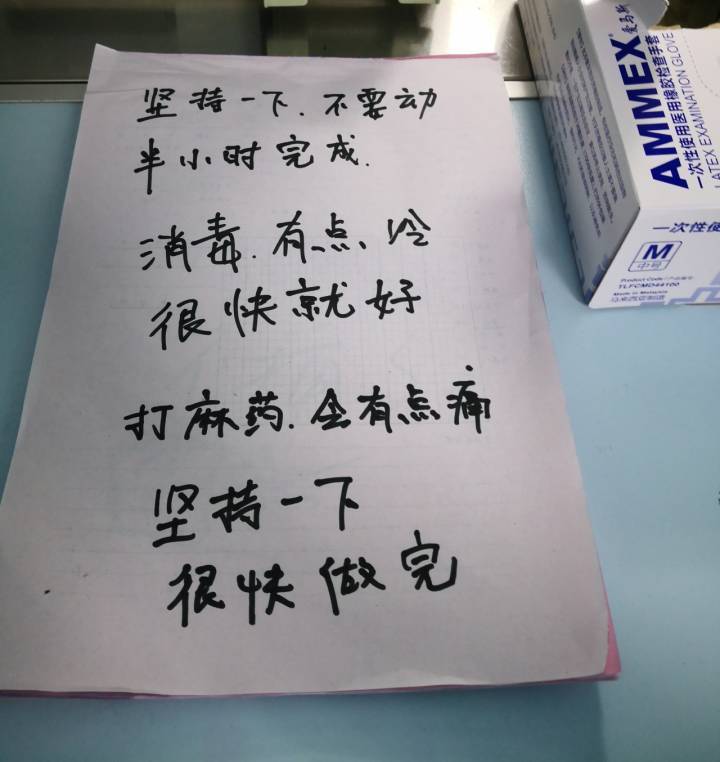 坚持一下.不要动
半小时完成.
消毒.有点冷
很快就好
打麻药.会有点痛
坚持一下
很快做完
AMMEX 爱马斯
一次性使用医用橡胶检查手套
LATEX EXAMINATION GLOVE
M
中号
TLFCMD44100
Made in Malaysia
马来西亚制造